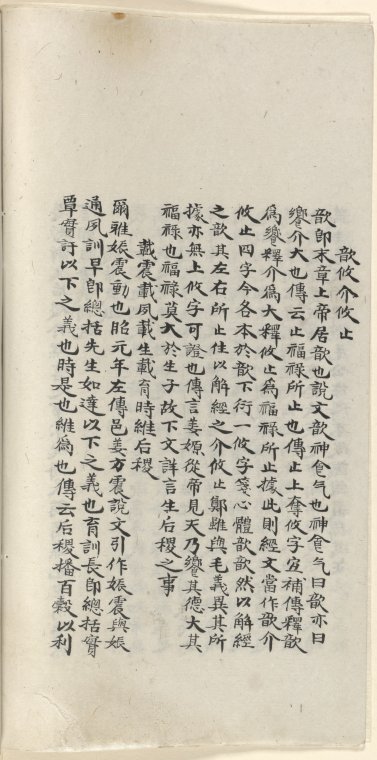 歆攸介攸止
歆卽本章上帝居歆也說文歆神食气也神食气曰歆亦曰
饗介大也傳云止福祿所止也傳止上奪攸字宜補傳釋歆
爲饗釋介爲大釋攸止爲福祿所止據此則經文當作歆介
攸止四字今各本於歆下衍一攸字箋心體歆歆然以解經
之歆其左右所止住以解經之介攸止鄭雖與毛義異其所
據亦無上攸字可證也傳言姜嫄從帝見天乃饗其德大其
福祿也福祿莫大於生子故下文詳言生后稷之事
載震載夙載生載育時維后稷
爾雅娠震動也昭元年左傳邑姜方震說文引作娠震與娠
通夙訓早卽總括先生如達以下之義也育訓長卽總括實
覃實訏以下之義也時是也維爲也傳云后稷播百穀以利